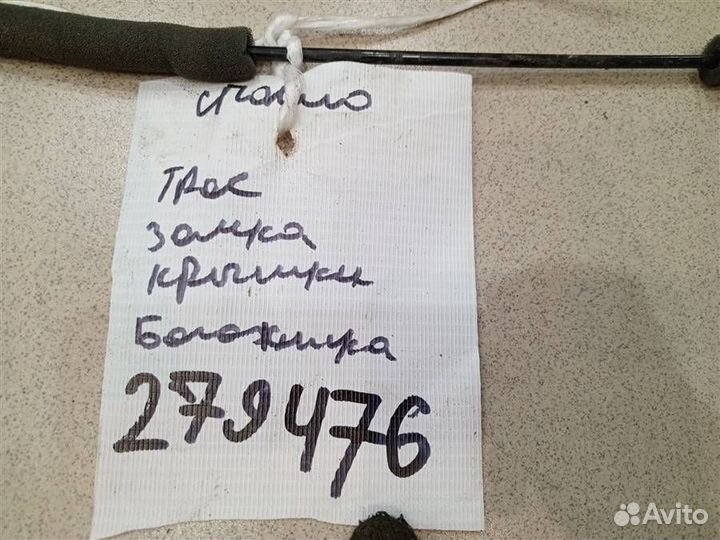 трос
замка
крышки
Богожника
279476
Avito